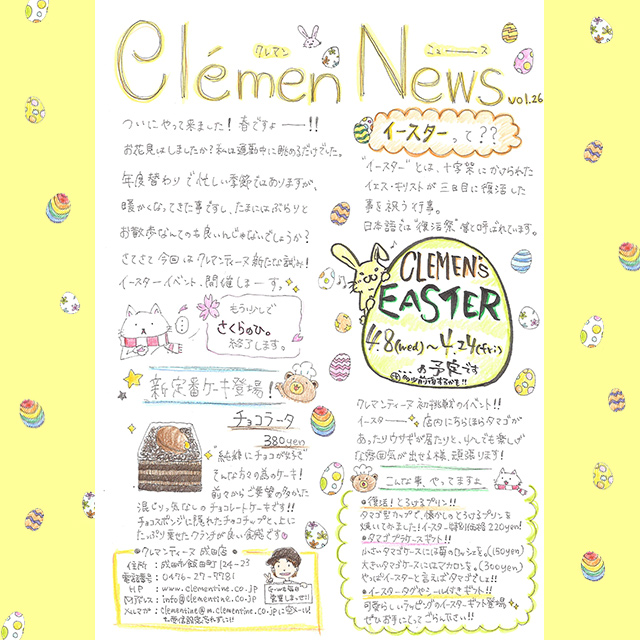 クレマン ニュース
Clémen News vol.26
ついにやって来ました！春ですよ――！！
お花見はしましたか？私は通勤中に眺めるだけでした。
年度替わりで忙しい季節ではありますが、
暖かくなってきた事ですし、たまにはぶらりと
お散歩なんてのも良いんじゃないでしょうか？
さてさて今回はクレマンティーヌ新たな試み！
イースターイベント、開催しまーすっ
もう少しで
さくらのひ。
終了します。
新定番ケーキ登場！
チョコラータ
380yen
"純粋にチョコが好き"
そんな方々の為のケーキ！
前々からご要望の多かった
混じりっ気なしのチョコレートケーキです！！
チョコスポンジに隠れたチョコチップと、上に
たっぷり乗せたクランチが良い食感です
●クレマンティーヌ 成田店●
住所：成田市飯田町124-23
電話番号：0476-27-8781
HP：www.clementine.co.jp
Mアドレス：info@clementine.co.jp
メルマガ：clementine@m.clementine.co.jpに空メール！
イースターって？？
"イースター"とは、十字架にかけられた
イエス・キリストが三日目に復活した
事を祝う行事。
日本語では"復活祭"等と呼ばれています。
CLEMEN's
EASTER
4.8(wed)～4.24(fri)
の予定です
クレマンティーヌ初挑戦のイベント！！
イースター 店内にちらほらタマゴが
あったりウサギが居たりと、少しでも楽しげ
な雰囲気が出せる様、頑張ります！
こんな事、やってますよ
●復活！とろけるプリン！！
タマゴ型カップで、懐かしのとろけるプリンを
焼いてみました！イースター特別価格220yen！
●タマゴプラケースギフト！！
小さいタマゴケースには苺のロッシェを。(150yen)
大きいタマゴケースにはマカロンを。(300yen)
やっぱイースターと言えばタマゴでしょ！！
●イースタータグやシール付きギフト！！
可愛らしいラッピングのイースターギフト登場
ぜひお手にとってごらん下さい！！